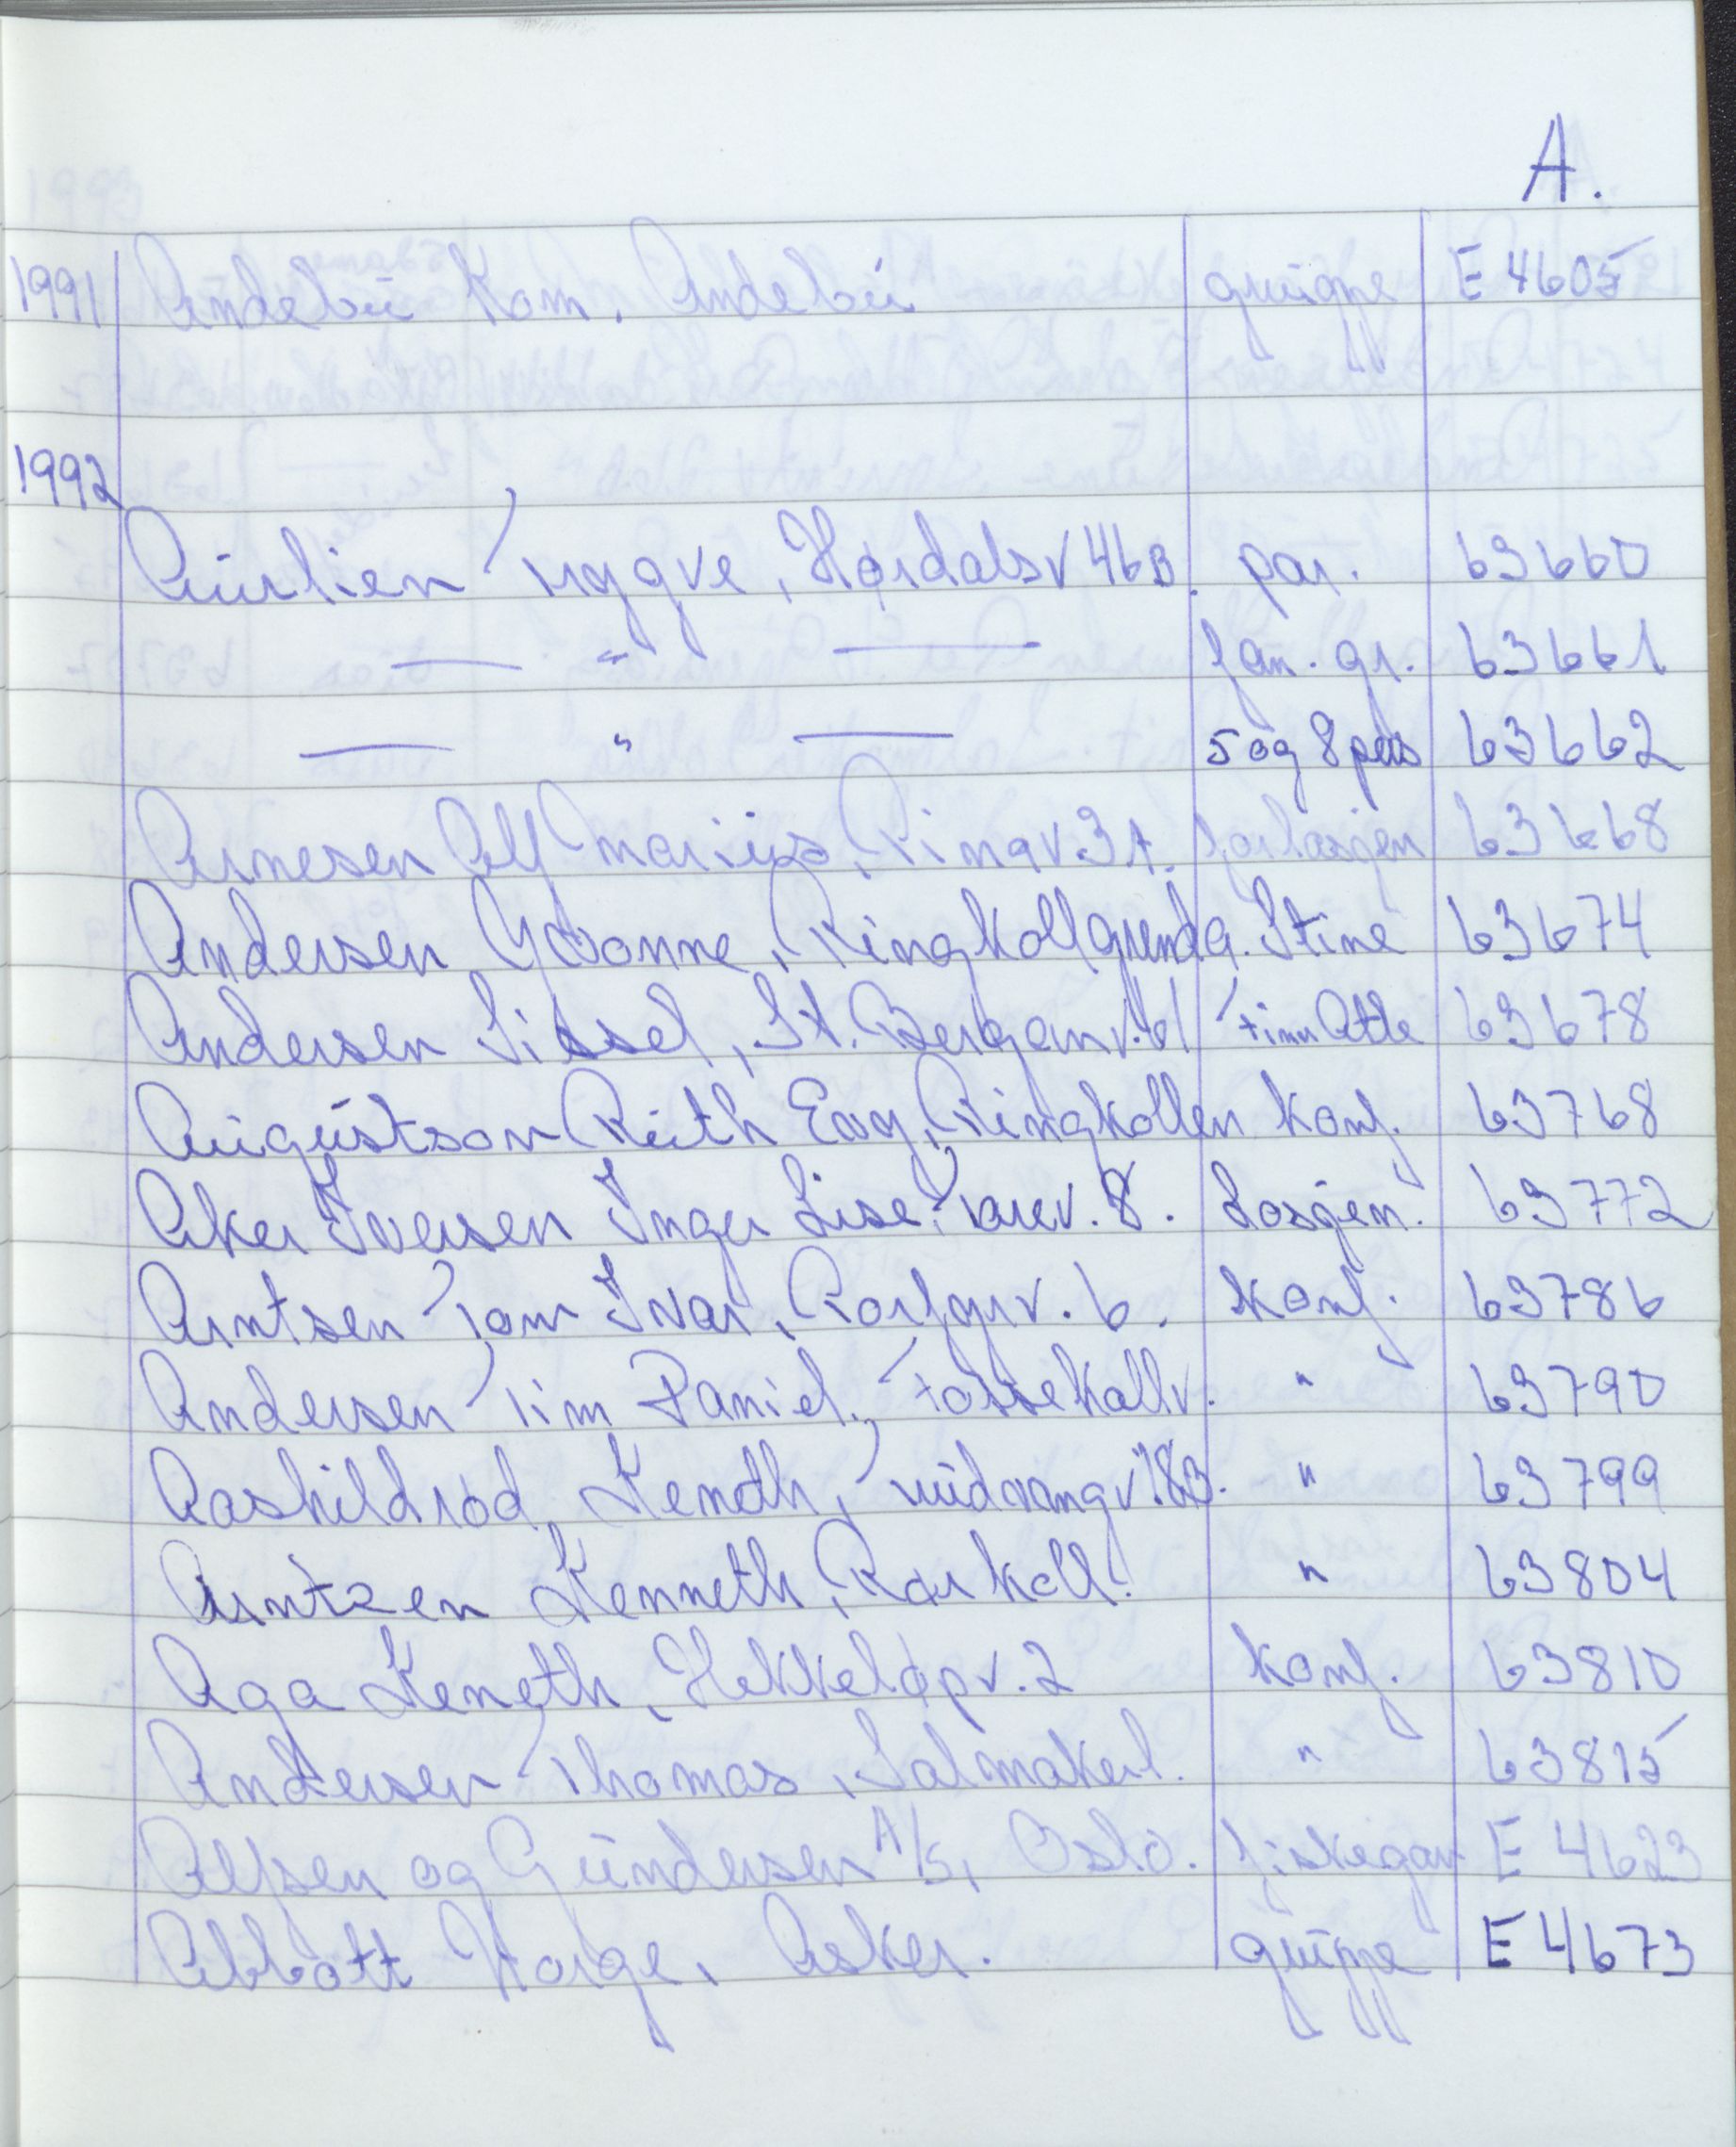 A.
1991 Andebu Kom. Andebu gruppe E 4605
1992
Aurlien Trygve, Hørdalsv 46B. par. 63660
— " — fam. gr. 63661
— " — 5 og 8 pers 63662
Arnesen Alf Marius, Ringv. 3A. 63668
Andersen Yvonne, Ringkollgrenda. Stine 63674
Andersen Sissel, St. Berganv. 61 Finn Atle 63678
Augustson Ruth Evy, Ringkollen Konf. 63768
Aker Iversen Inger Lise, 8. 63772
Arntsen Tom Ivar, 6. Konf. 63786
Andersen Tim Daniel, Fossekallv. " 63790
Aaskildrød, Keneth, Midvangv. 18B. " 63799
Arntzen Kenneth, Rørkoll. " 63804
Aga Keneth, Hekkeløpv. 2 Konf. 63810
Andersen Thomas, Salmakerl. " 63815
Alfsen og Gundersen A/S, Oslo. E 4623
Abbott Norge, Asker. gruppe E 4673